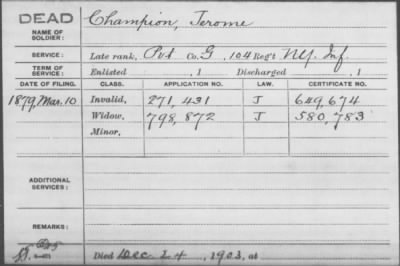 DEAD
NAME OF SOLDIER: Champion, Jerome
SERVICE: Late rank, Pvt Co. G, 104 Reg't N.Y. Inf.
TERM OF SERVICE: Enlisted , 1 Discharged , 1
DATE OF FILING. CLASS. APPLICATION NO. LAW. CERTIFICATE NO.
1879, Mar. 10 Invalid, 271,431 J 649,674
Widow, 798,872 J 580,783
Minor,
ADDITIONAL SERVICES:
REMARKS:
Died Dec 24, 1903, at